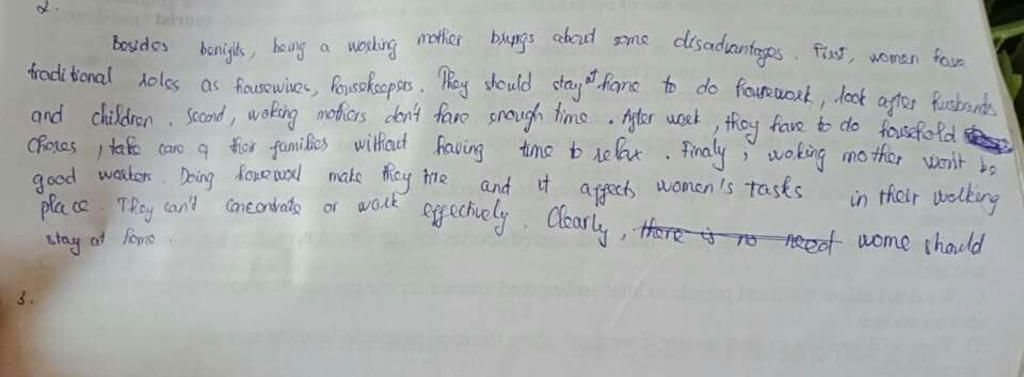 2.
Besides benifits, being a working mother brings about some disadvantages. First, women have
traditional roles as housewives, housekeepers. They should stay at home to do housework, look after husbands
and children. Second, woking mothers don't have enough time. After work, they have to do household
chores, take care of their families without having time to relax. Finaly, woking mother won't be
good workers. Doing housewol make they tire and it affects women's tasks in their wolking
place. They can't concentrate or work effectively. Clearly, there is no need wome should
stay at home.
3.